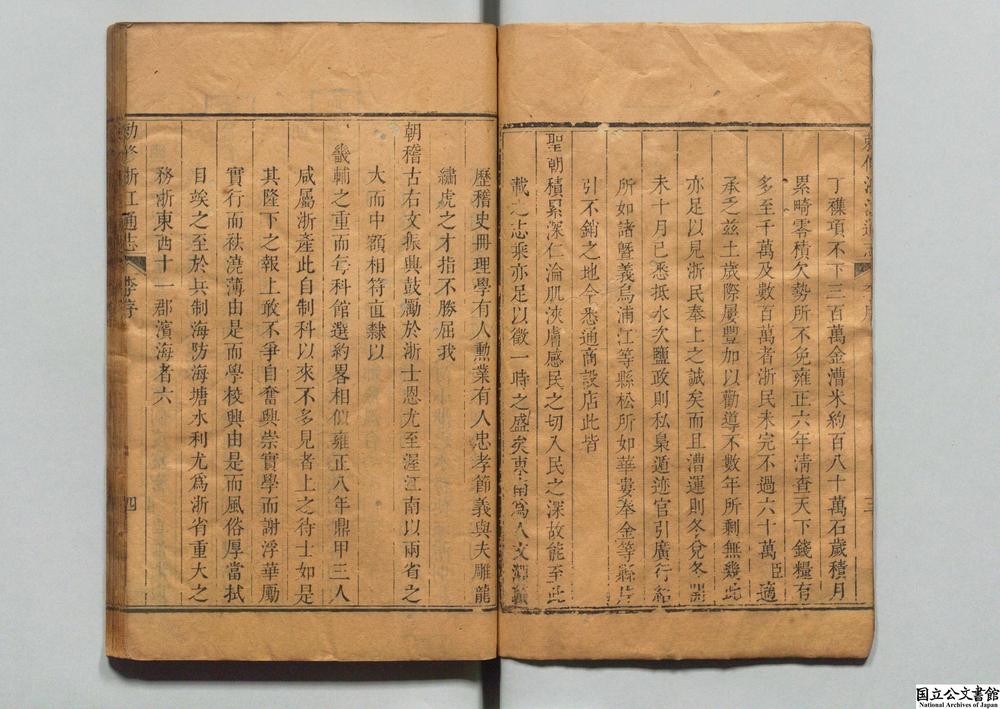 丁穅項不下三百萬金漕米約百八十萬石歲積月
累畸零積欠勢所不免雍正六年清查天下錢糧有
多至千萬及數百萬者浙民未完不過六十萬臣適
承之茲土歲際屢豐加以勸導不數年所剩無幾此
亦足以見浙民奉上之誠矣而且漕運則冬兌冬開
未十月已悉抵水次鹽政則私梟遁迹官引廣行紹
所如諸暨義烏浦江等縣松所如華婁奉金等縣片
引不銷之地今悉通商設店此皆
聖朝積累深仁淪肌浹膚感民之切入民之深故能至此
載之志乘亦足以徵一時之盛矣東南爲人文淵藪
歷稽史冊理學有人勲業有人忠孝節義與夫雕龍
繡虎之才指不勝屈我
朝稽古右文振興鼓勵於浙士恩尤至渥江南以兩省之
大而中額相符直隸以
畿輔之重而每科館選約畧相似雍正八年鼎甲三人
咸屬浙產此自制科以來不多見者上之待士如是
其隆下之報上敢不爭自奮興崇實學而謝浮華勵
實行而袪澆薄由是而學校興由是而風俗厚當拭
目竢之至於兵制海防海塘水利尤爲浙省重大之
務浙東西十一郡濱海者六
勅修浙江通志 李序 四
国立公文書館
National Archives of Japan